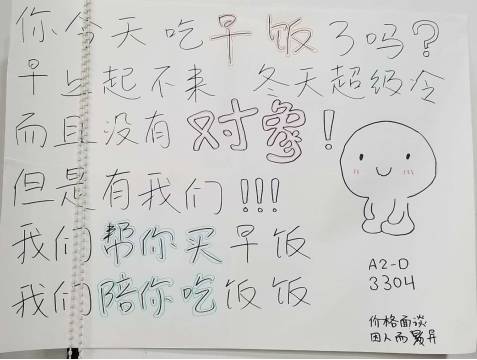 你今天吃早饭了吗?
早上起不来 冬天超级冷
而且没有对象!
但是有我们!!!
我们帮你买早饭
我们陪你吃饭饭
A2-D
3304
价格面谈
因人而异